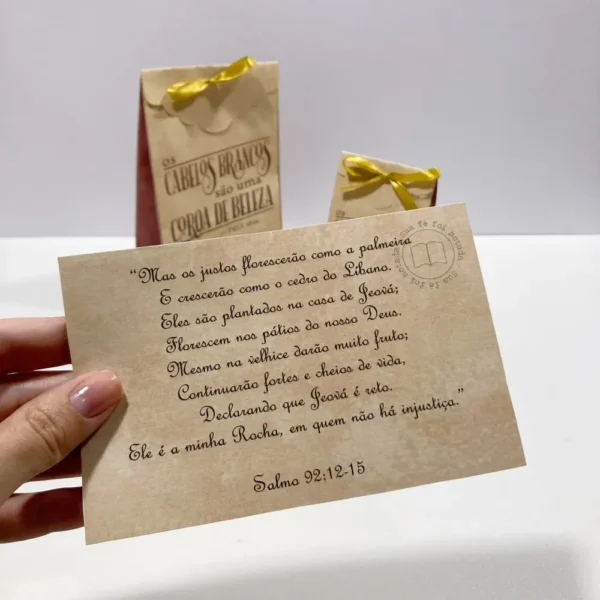 OS
CABELOS BRANCOS
são uma
COROA DE BELEZA
“Mas os justos florescerão como a palmeira
E crescerão como o cedro do Líbano.
Eles são plantados na casa de Jeová;
Florescem nos pátios do nosso Deus.
Mesmo na velhice darão muito fruto;
Continuarão fortes e cheios de vida,
Declarando que Jeová é reto.
Ele é a minha Rocha, em quem não há injustiça.”
Salmo 92:12-15
sua fé foi notada sua fé foi notada